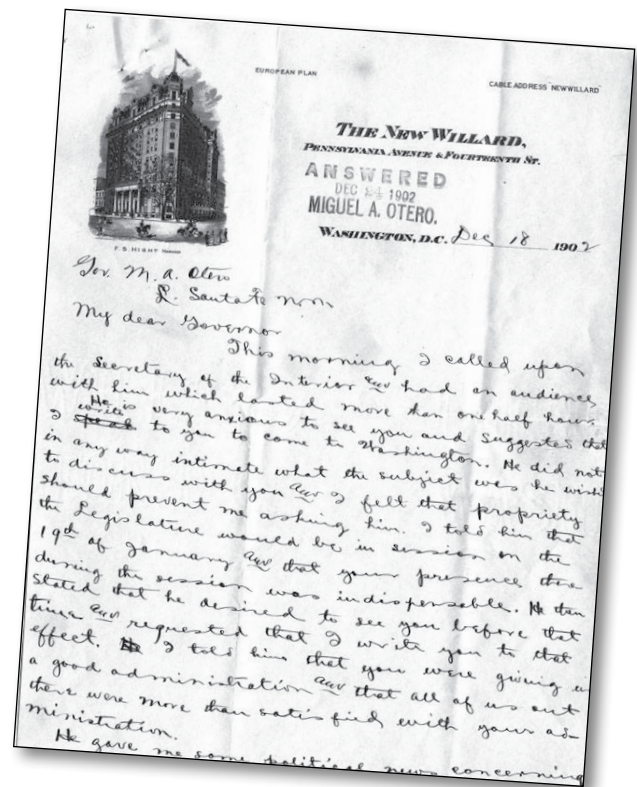 EUROPEAN PLAN
CABLE ADDRESS "NEWWILLARD"
THE NEW WILLARD,
PENNSYLVANIA AVENUE & FOURTEENTH ST.
ANSWERED
DEC 24 1902
MIGUEL A. OTERO.
WASHINGTON, D.C. Dec 18 1902
F. S. HIGHT MANAGER
Gov. M. A. Otero
Santa Fe N.M.
My dear Governor
This morning I called upon
the Secretary of the Interior and had an audience
with him which lasted more than one half hour.
He is very anxious to see you and suggested that
I write to you to come to Washington. He did not
in any way intimate what the subject was he wish
to discuss with you and I felt that propriety
should prevent me asking him. I told him that
the Legislature would be in session on the
19th of January and that your presence there
during the session was indispensable. He then
stated that he desired to see you before that
time and requested that I write you to that
effect. I told him that you were giving u
a good administration and that all of us out
there were more than satisfied with your ad-
ministration.
He gave me some political news concerning